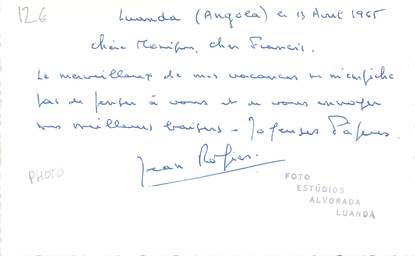 126
Luanda (Angola) le 13 Avril 1965
chère Monique, cher Francis.
Le merveilleux de mes vacances ne m'empêche
pas de penser à vous et de vous envoyer
mes meilleurs baisers - Joyeuses Pâques.
Jean
PHOTO
FOTO
ESTÚDIOS
ALVORADA
LUANDA